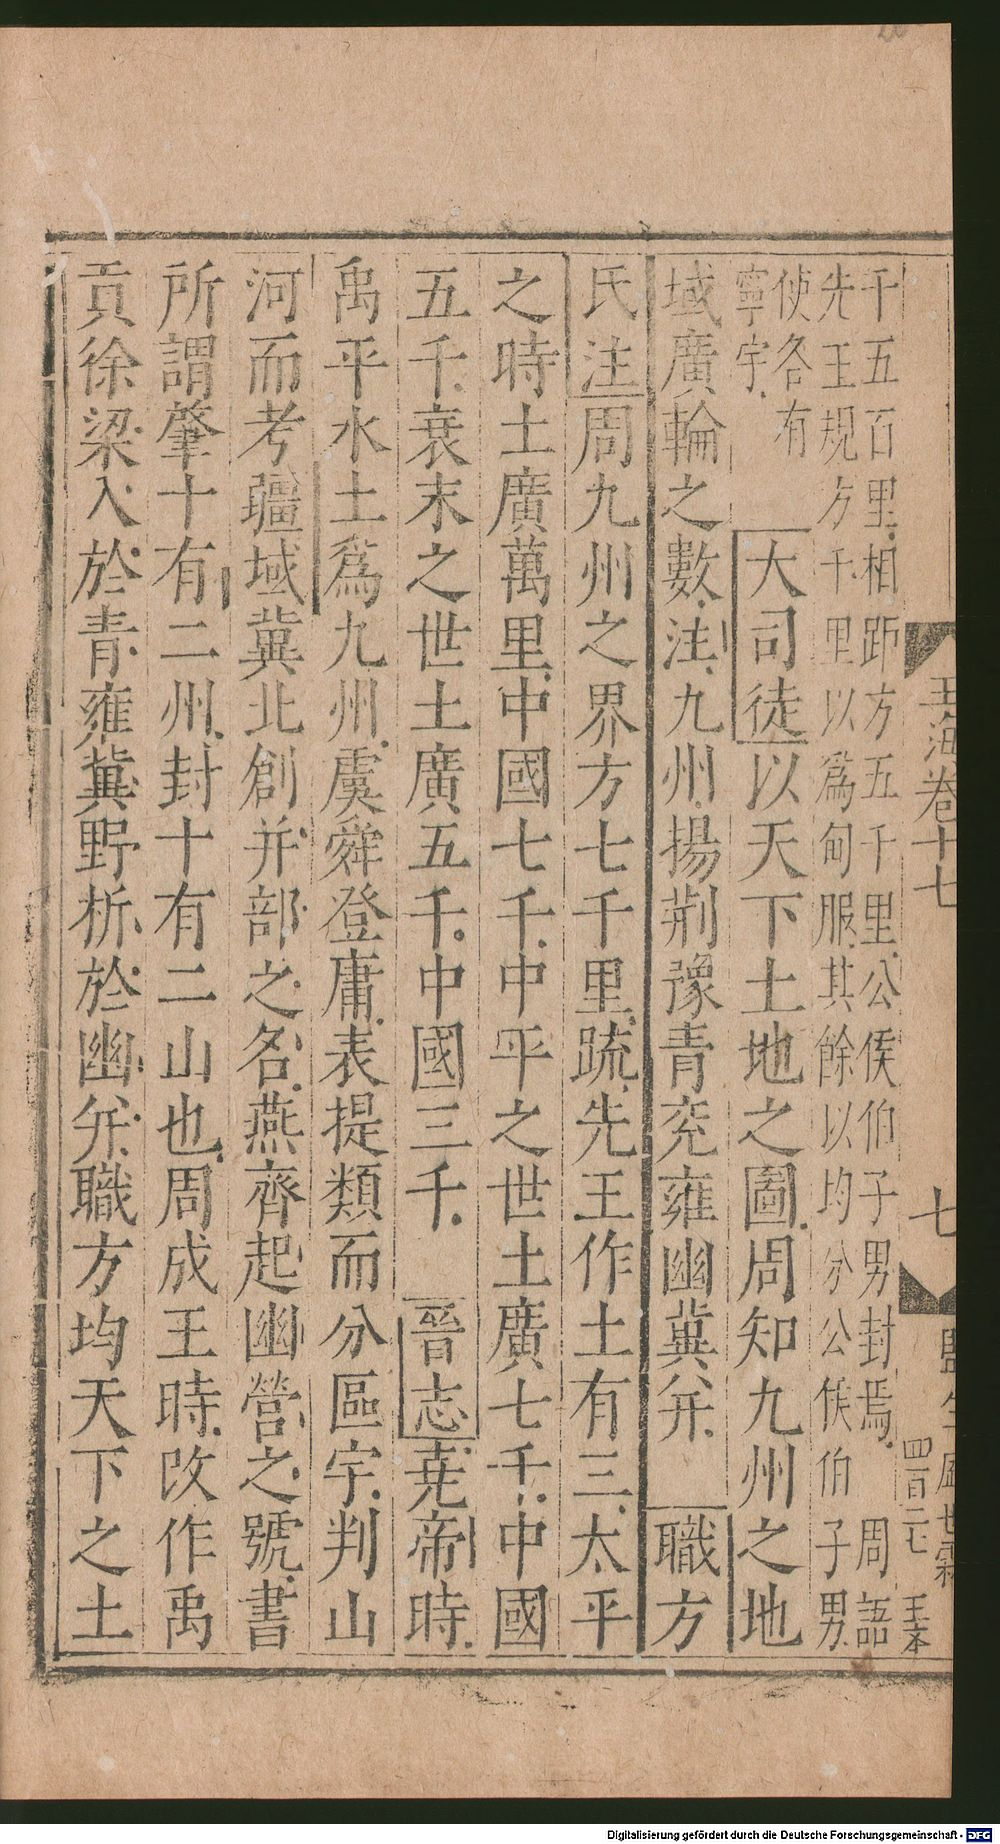 玉海卷十七
七
監生
世霖
四百二七
王本
千五百里相距方五千里公侯伯子男封焉 周語
先王規方千里以爲甸服其餘以均分公侯伯子男
使各有
寧宇 大司徒以天下土地之圖周知九州之地
域廣輪之數注九州揚荆豫青兖雍幽冀并 職方
氏注周九州之界方七千里疏先王作土有三太平
之時土廣萬里中國七千中平之世土廣七千中國
五千衰末之世土廣五千中國三千 晉志堯帝時
禹平水土爲九州虞舜登庸表提類而分區宇判山
河而考疆域冀北創并部之名燕齊起幽營之號書
所謂肇十有二州封十有二山也周成王時改作禹
貢徐梁入於青雍冀野析於幽并職方均天下之土
Digitalisierung gefördert durch die Deutsche Forschungsgemeinschaft - DFG